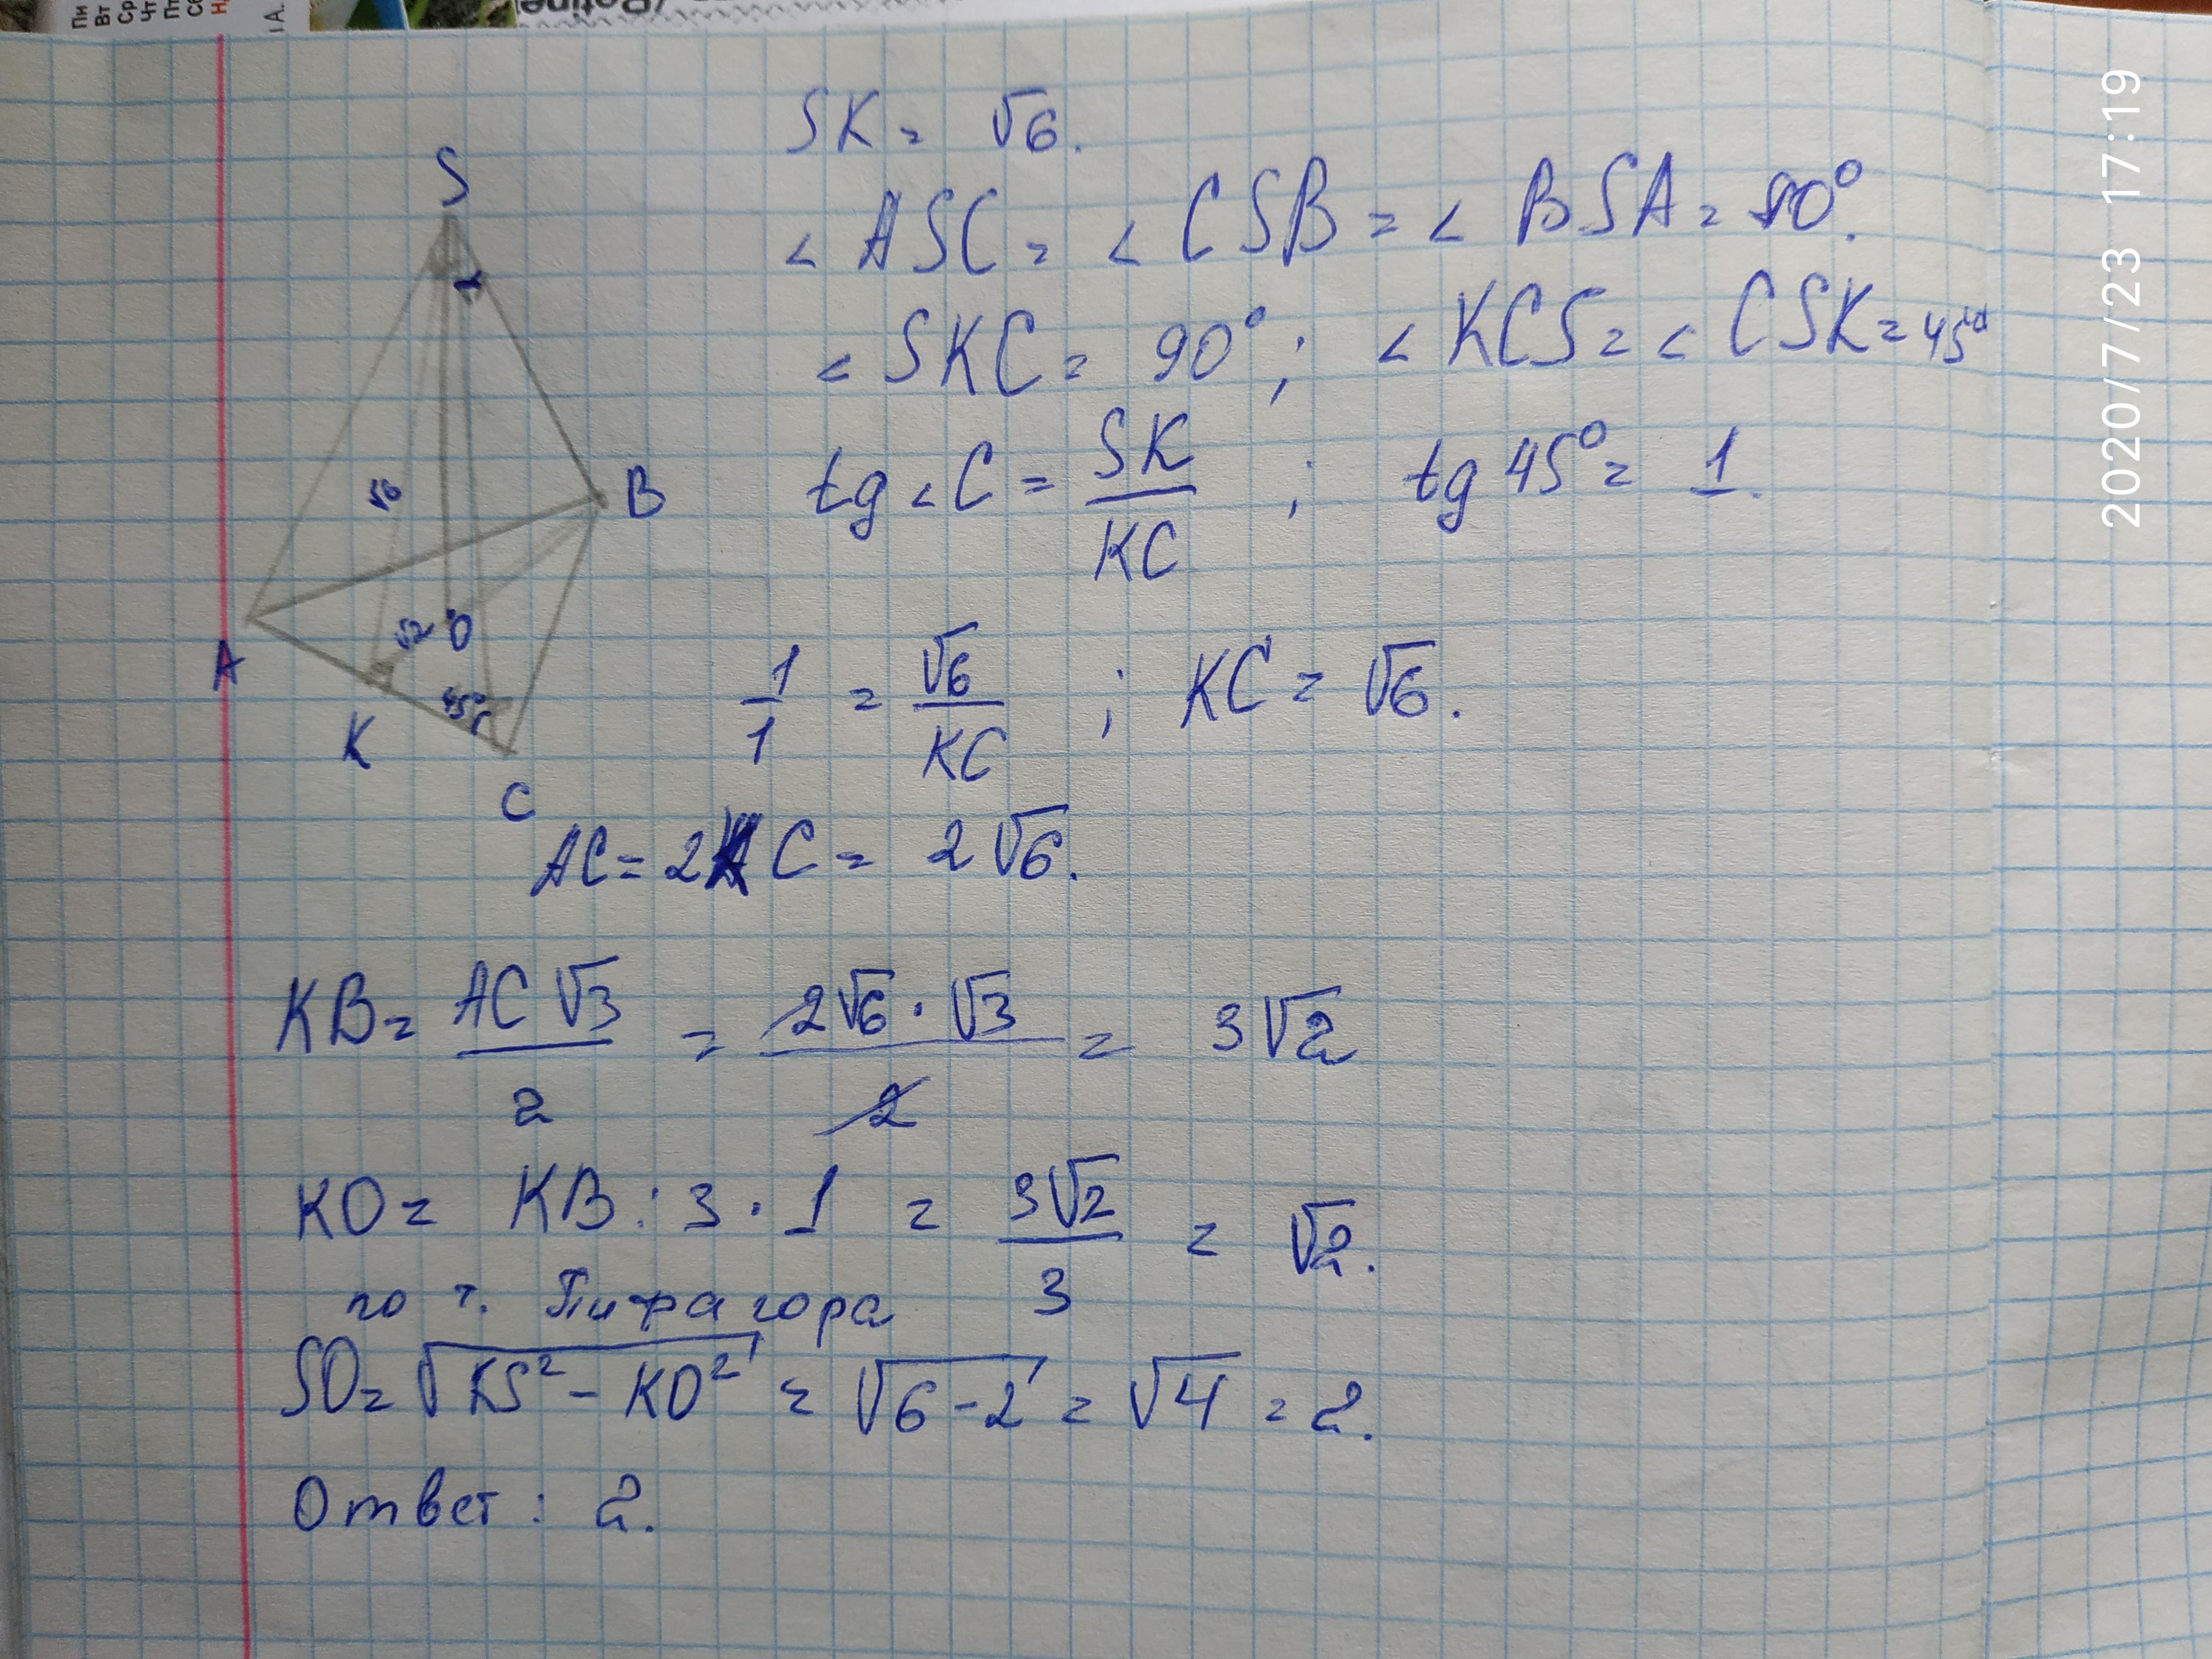 Пн
Вт
Ср
Чт
Пт
Сб
А.
(Retine
2020/7/23 17:19
SK = √6.
S
∠ ASC = ∠ CSB = ∠ BSA = 90°.
∠ SKC = 90°; ∠ KCS = ∠ CSK = 45°
tg ∠C = SK/KC ; tg 45° = 1.
√6
B
√2 O
A
45°
K
C
1/1 = √6/KC ; KC = √6.
AC = 2KC = 2√6.
KB = AC√3/2 = 2√6·√3/2 = 3√2
KO = KB : 3 · 1 = 3√2/3 = √2.
по т. Пифагора
SO = √KS² - KO² = √6-2 = √4 = 2.
Ответ: 2.